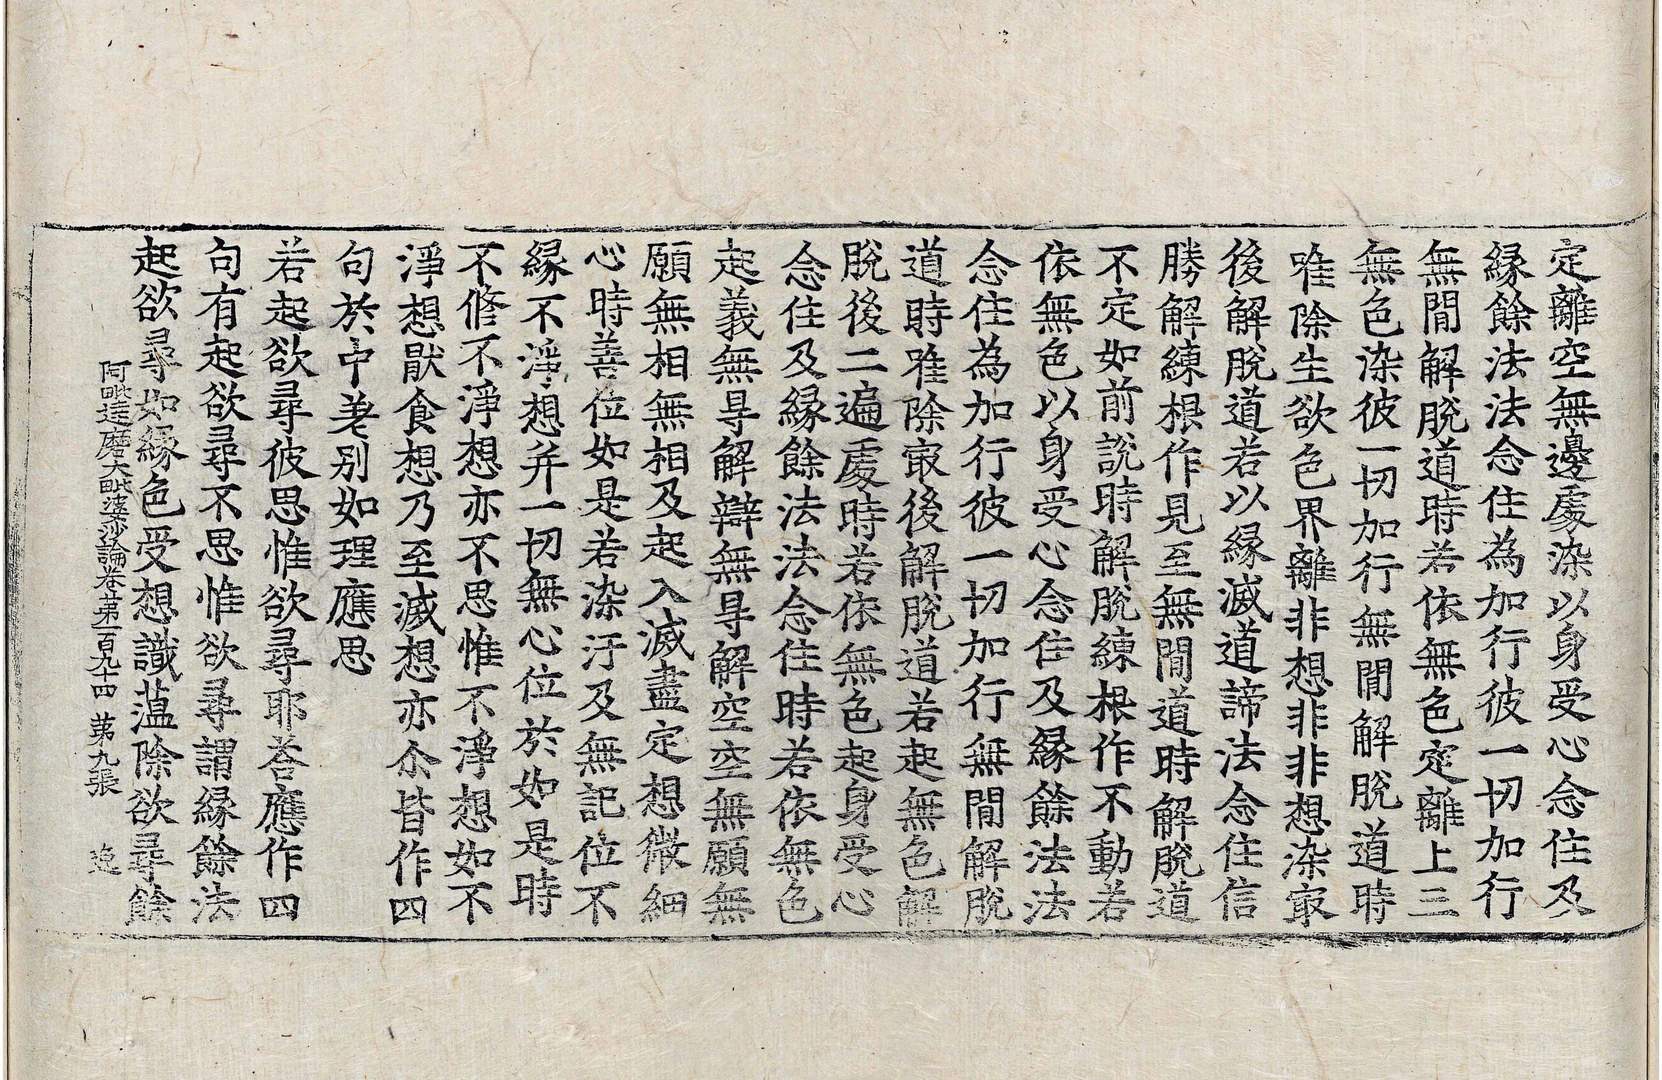 定離空無邊處染以身受心念住及
緣餘法法念住為加行彼一切加行
無閒解脫道時若依無色定離上三
無色染彼一切加行無閒解脫道時
唯除生欲色界離非想非非想染㝡
後解脫道若以緣滅道諦法念住信
勝解練根作見至無閒道時解脫道
不定如前說時解脫練根作不動若
依無色以身受心念住及緣餘法法
念住為加行彼一切加行無閒解脫
道時唯除㝡後解脫道若起無色解
脫後二遍處時若依無色起身受心
念住及緣餘法法念住時若依無色
起義無㝵解辯無㝵解空空無願無
願無相無相及起入滅盡定想微細
心時善位如是若染汙及無記位不
緣不淨想并一切無心位於如是時
不修不淨想亦不思惟不淨想如不
淨想猒食想乃至滅想亦尒皆作四
句於中差別如理應思
若起欲尋彼思惟欲尋耶荅應作四
句有起欲尋不思惟欲尋謂緣餘法
起欲尋如緣色受想識薀除欲尋餘
阿毗達磨大毗婆沙論卷第一百九十四 第九張 逸